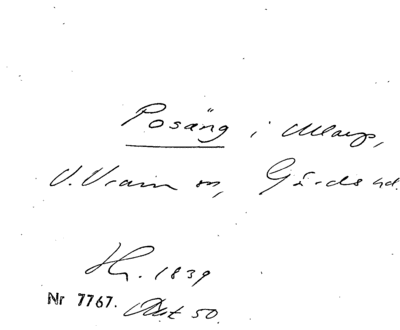 Posäng i Maglarp,
V. Vram sn, Gärds hd.
Hr. 1839
Nr 7767. Akt 50.